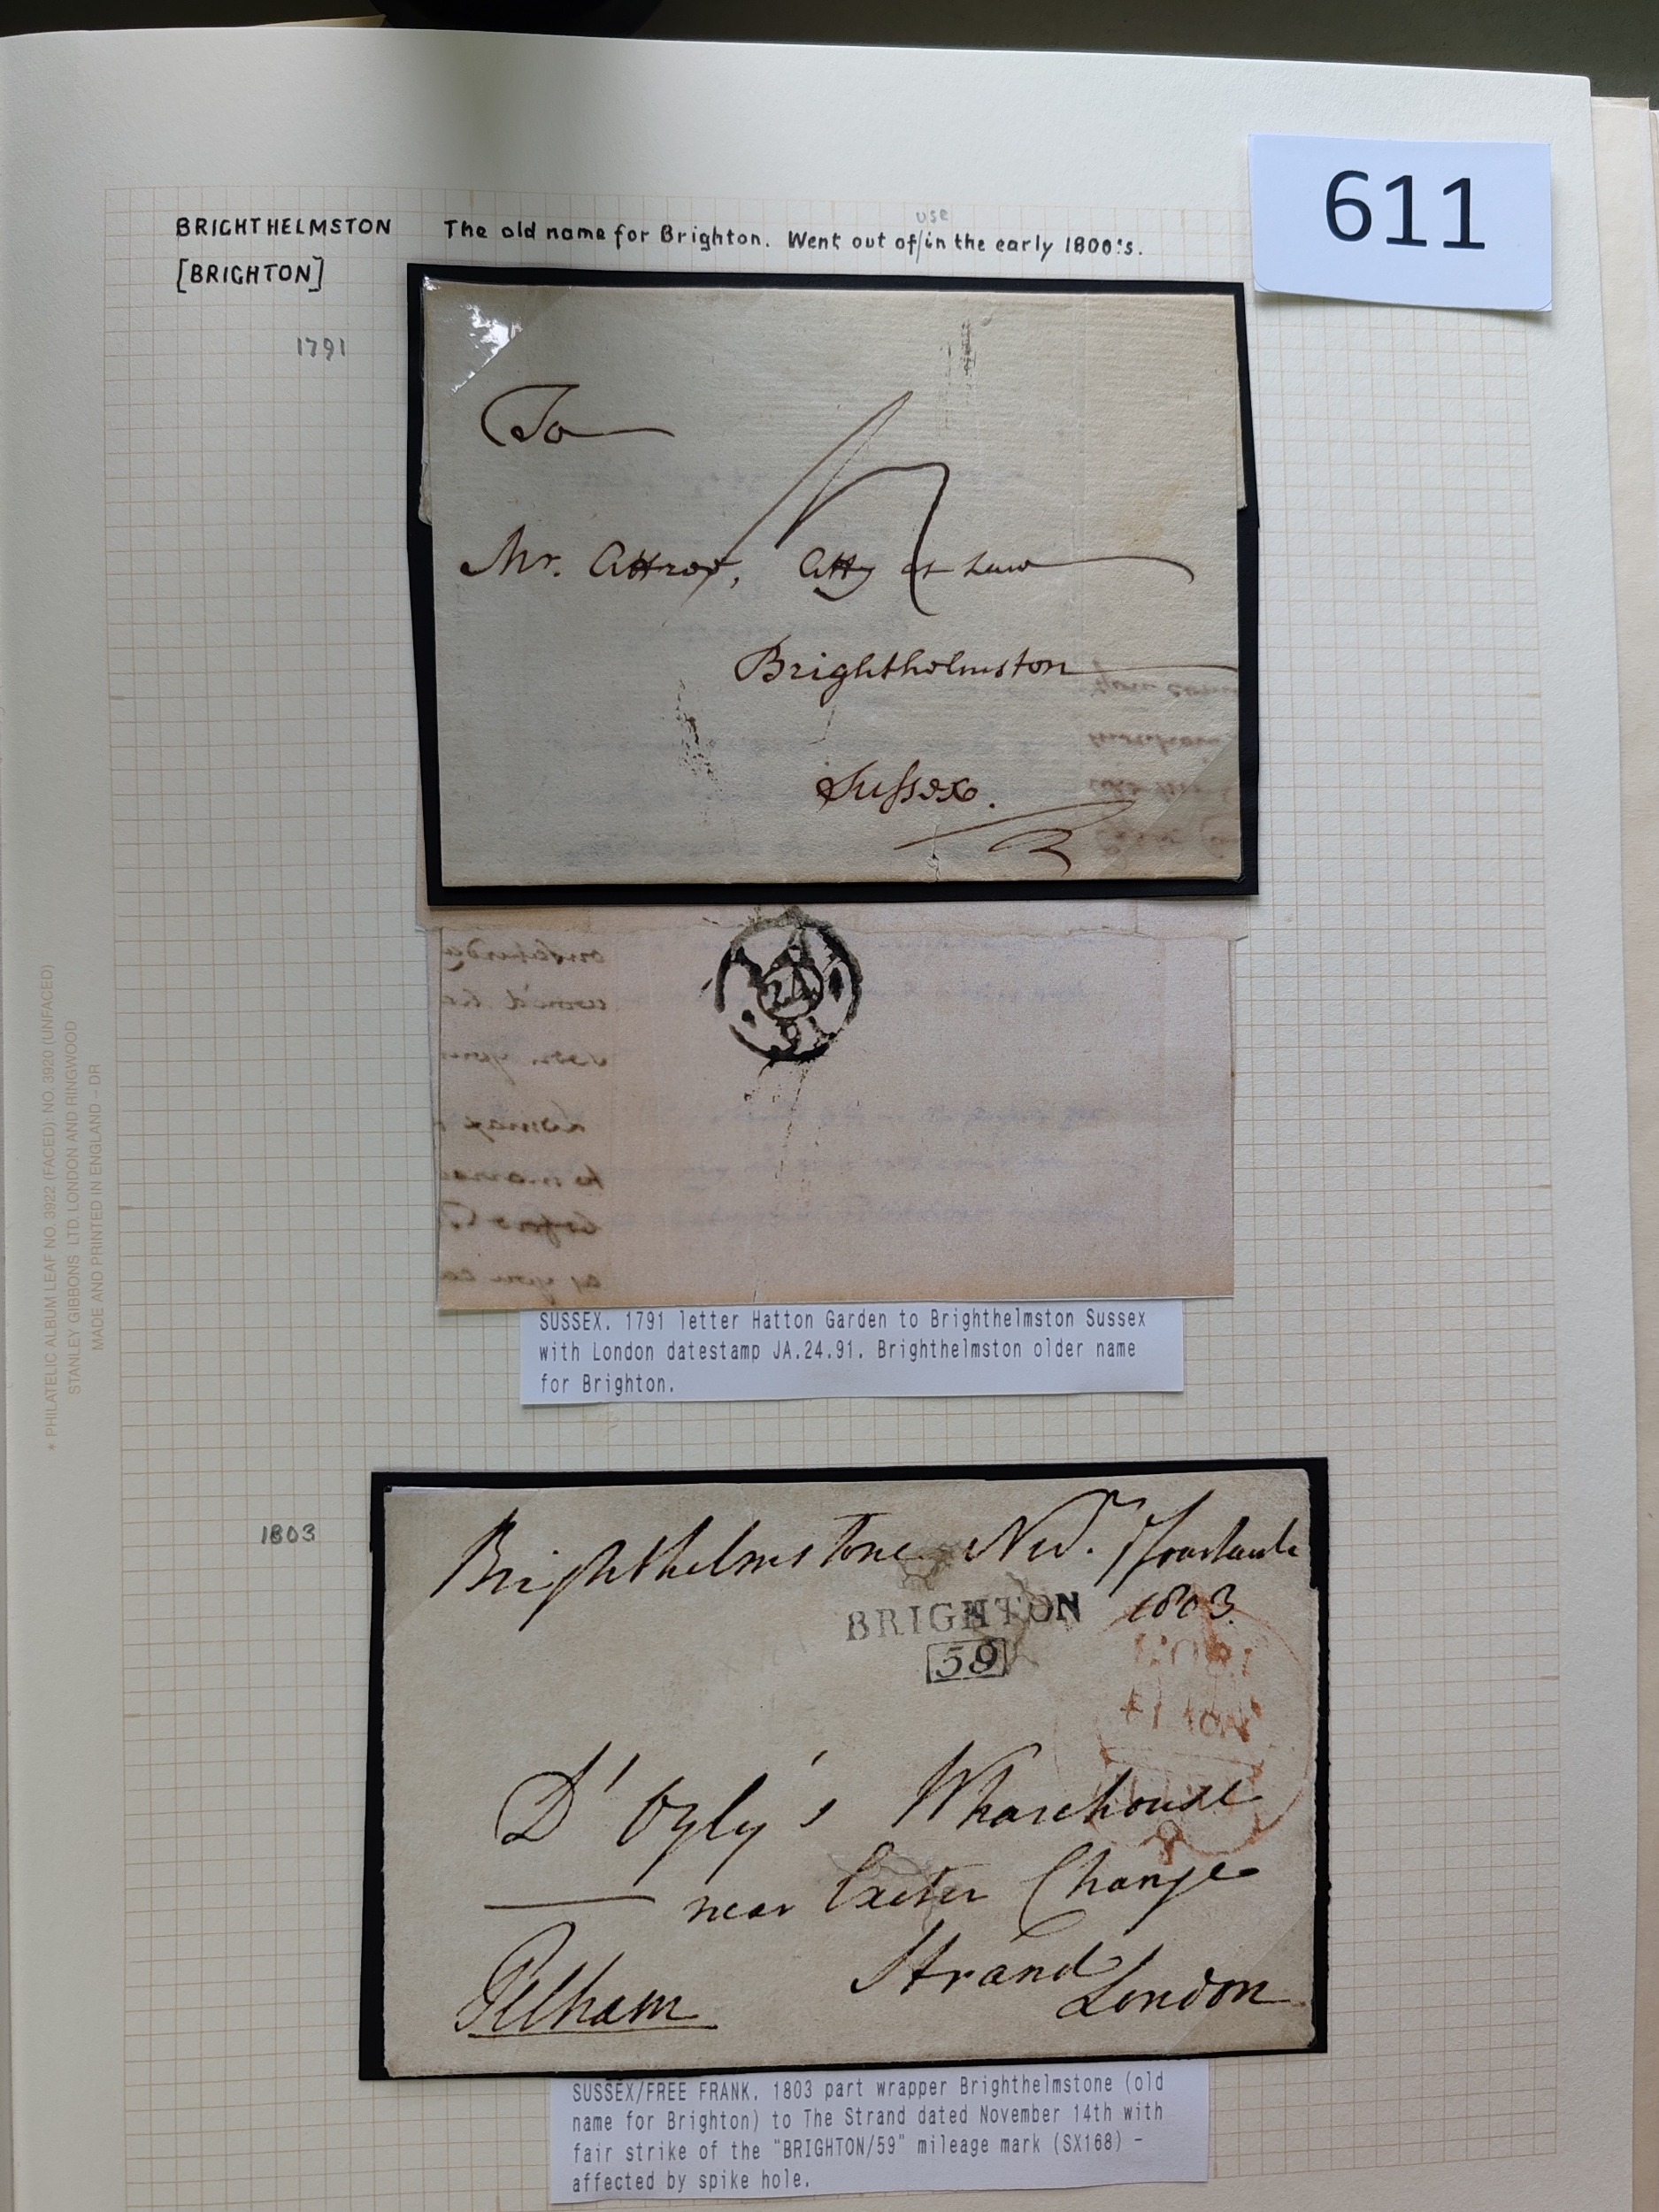 611
BRIGHTHELMSTON The old name for Brighton. Went out of/in the early 1800's.
use
[BRIGHTON]
1791
To
Mr. Attree, Atty at Law
Brighthelmston
Sussex.
24
91
SUSSEX. 1791 letter Hatton Garden to Brighthelmston Sussex
with London datestamp JA.24.91. Brighthelmston older name
for Brighton.
1803
Brighthelmstone Novr. fourteenth
1803.
BRIGHTON
59
D'Oyly's Wharehouse
near Exeter Change
Strand
London
Pelham
SUSSEX/FREE FRANK. 1803 part wrapper Brighthelmstone (old
name for Brighton) to The Strand dated November 14th with
fair strike of the "BRIGHTON/59" mileage mark (SX168) -
affected by spike hole.
* PHILATELIC ALBUM LEAF NO. 3922 (FACED) NO. 3920 (UNFACED)
STANLEY GIBBONS LTD. LONDON AND RINGWOOD
MADE AND PRINTED IN ENGLAND - DR